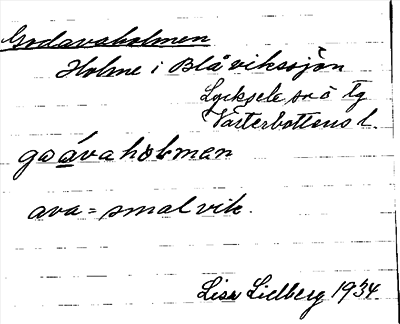 Godavaholmen
Holme i Blåvikssjön
Lycksele sn o tg
Västerbottens l.
goávaholmen
ava = smal vik.
Lisa Lidberg 1934.